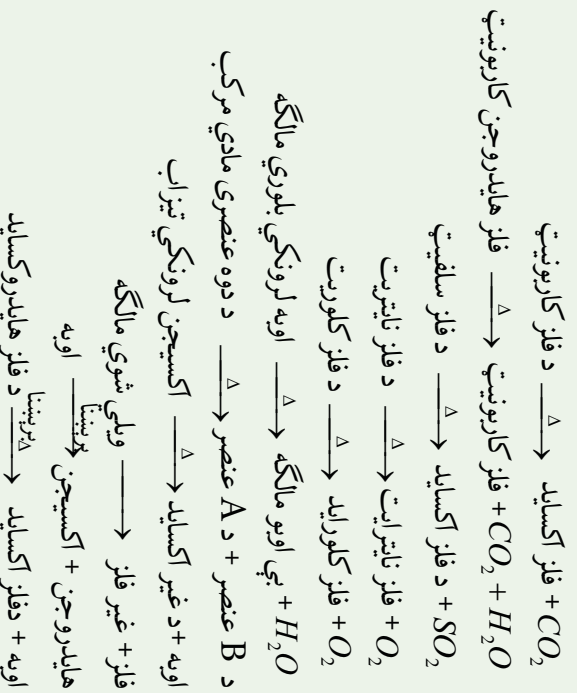 د فلز کاربونیټ —Δ→ فلز اکساید + CO₂
فلز هایدروجن کاربونیټ —Δ→ فلز کاربونیټ + CO₂ + H₂O
د فلز سلفیټ —Δ→ د فلز اکساید + SO₂
د فلز نایتریت —Δ→ فلز نایترایت + O₂
د فلز کلوریت —Δ→ فلز کلوراید + O₂
اوبه لرونکي بلوري مالگه —Δ→ بي اوبو مالگه + H₂O
د دوه عنصری مادي مرکب —Δ→ د A عنصر + د B عنصر
اکسیجن لرونکي تیزاب —Δ→ اوبه + د غیر اکساید
ویلي شوي مالگه —→ فلز + غیر فلز
اوبه —بریښنا→ هایدروجن + اکسیجن
د فلز هایدروکساید —بریښنا Δ→ اوبه + دفلز اکساید